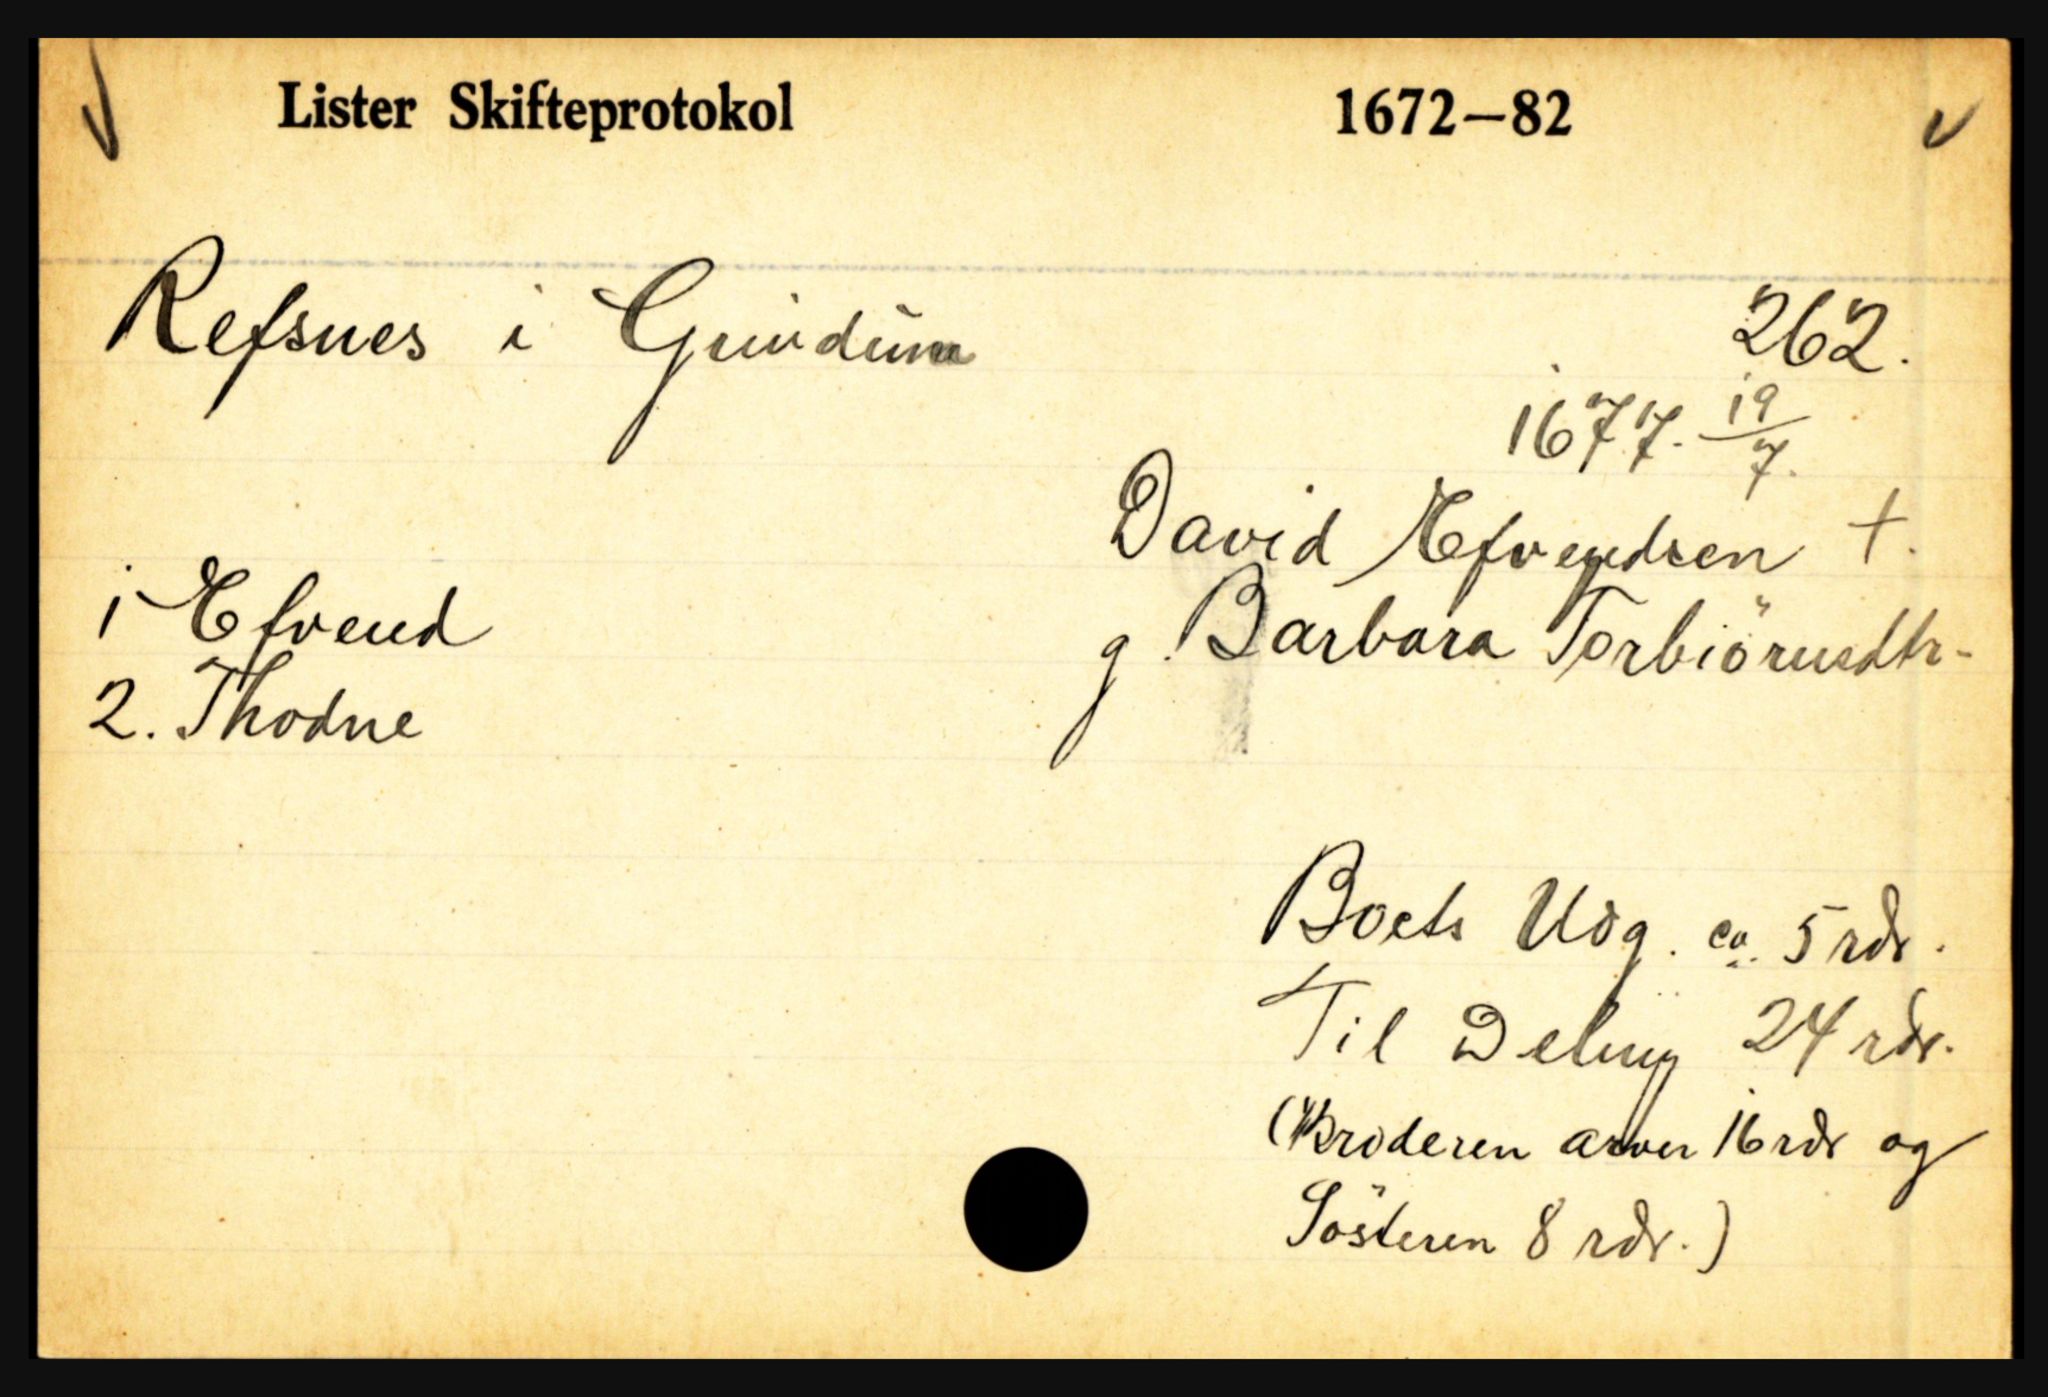 Lister Skifteprotokol 1672—82
Refsnes i Grindum 262.
1677. 19/7.
David Efvendsen †.
g. Barbara Torbiörnsdtr.
1 Efvend
2. Thodne
Boets Udg. ca. 5 rdr.
Til Deling 24 rdr.
(Broderen arver 16 rdr og
Sösteren 8 rdr.)